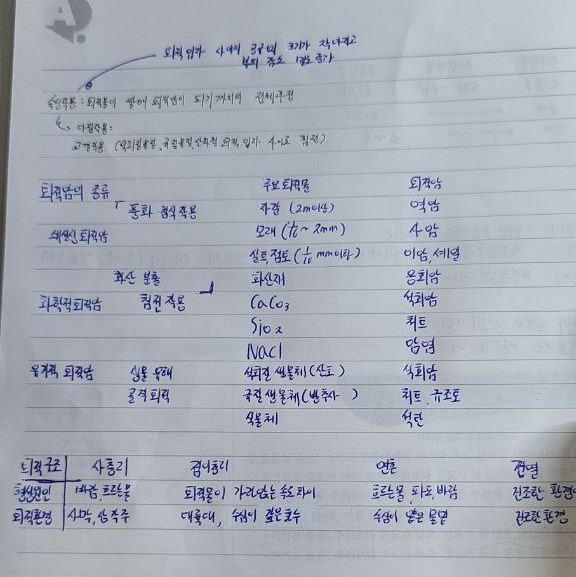 퇴적입자 사이의 공극의 크기가 작아지고
부피 감소 밀도 증가
속성작용 : 퇴적물이 쌓여 퇴적암이 되기까지의 전체과정
다짐작용:
교결작용 (석회질물질, 규질물질, 산화철 퇴적 입자 사이로 침전)
퇴적암의 종류 주요 퇴적물 퇴적암
풍화·침식작용 자갈 (2mm이상) 역암
쇄설성 퇴적암 모래 (1/16 ~ 2mm) 사암
실트·점토 (1/16 mm이하) 이암, 셰일
화산 분출 화산재 응회암
화학적퇴적암 침전작용 CaCO3 석회암
SiO2 처트
NaCl 암염
유기적 퇴적암 생물 유해 석회질 생물체 (산호) 석회암
골격퇴적 규질 생물체 (방추사) 처트, 규조토
식물체 석탄
퇴적구조 사층리 점이층리 연흔 건열
형성원인 바람, 흐르는물 퇴적물이 가라앉는 속도차이 흐르는물, 파도, 바람 건조한 환경
퇴적환경 사막, 삼각주 대륙대, 수심이 깊은호수 수심이 얕은 물밑 건조한 환경